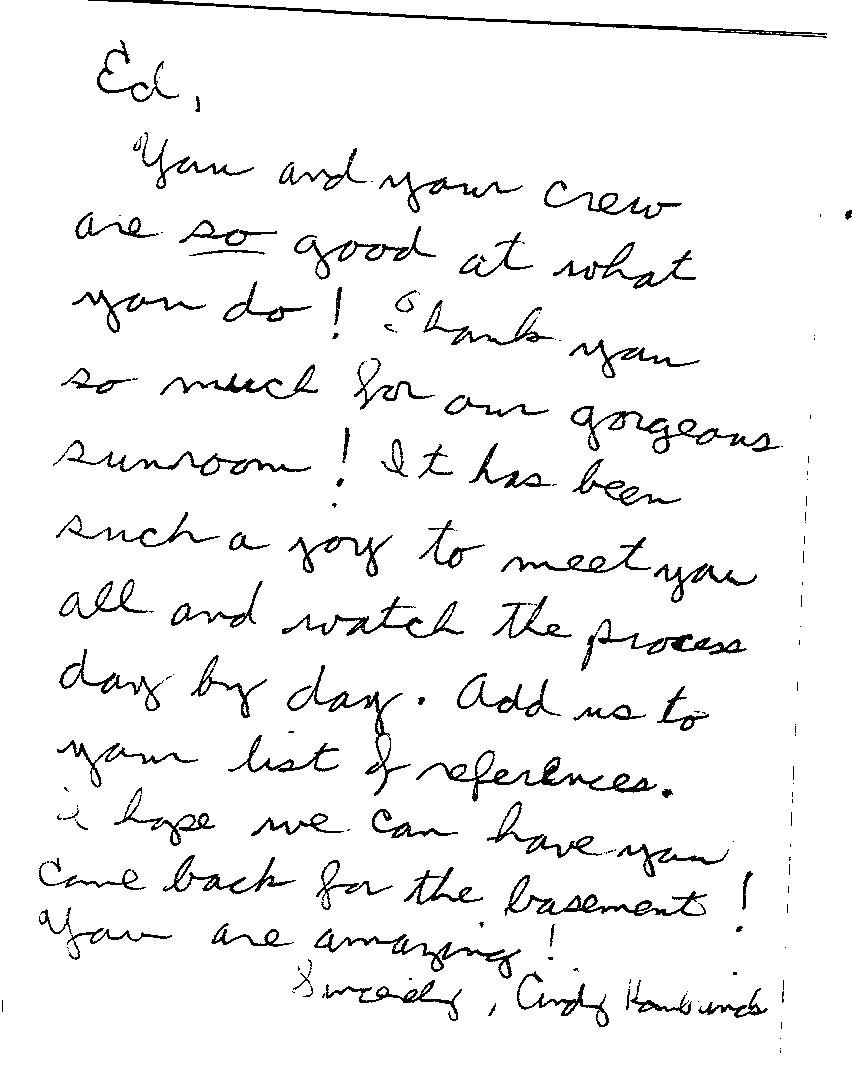 Ed,
You and your crew
are so good at what
you do! Thank you
so much for our gorgeous
sunroom! It has been
such a joy to meet you
all and watch the process
day by day. Add us to
your list of references.
I hope we can have you
come back for the basement!
You are amazing!
Sincerely, Cindy